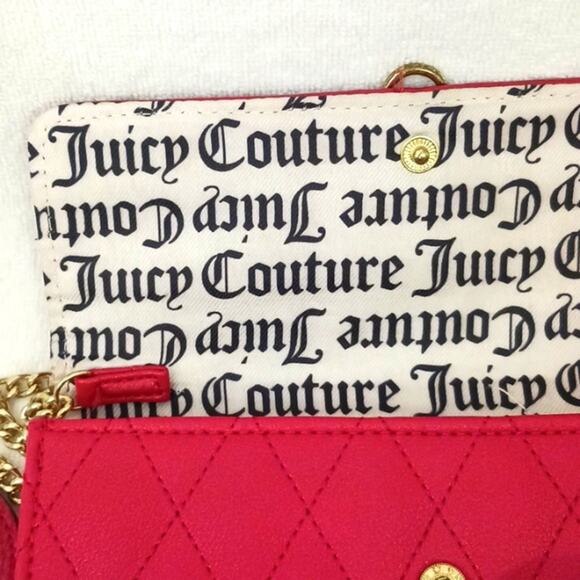 Juicy Couture Juicy
Couture Juicy Couture
Juicy Couture Juicy
Couture Juicy Couture
Juicy Couture Juicy